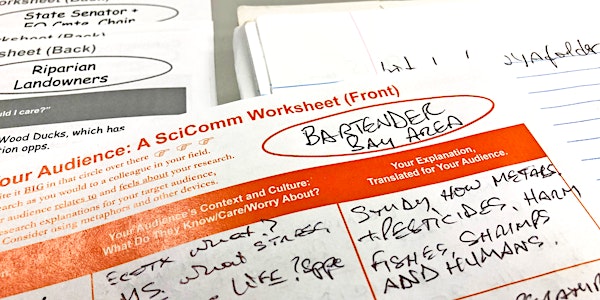 State Senator +
EQ Cmte. Chair
sheet (Back)
Riparian
Landowners
ould I care?"
Wood Ducks, which has
tion opps.
our Audience: A SciComm Worksheet (Front)
BARTENDER
BAY AREA
ite it BIG in that circle over there
arch as you would to a colleague in your field.
ur audience relates to and feels about your research.
search explanations for your target audience,
Consider using metaphors and other devices.
Your Audience's Context and Culture:
What Do They Know/Care/Worry About?
Your Explanation,
Translated for Your Audience.
ECOTX what?
vs. what STRESS
LIFE?
STUDY HOW METALS
+ PESTICIDES, HARM
FISHES, SHRIMPS
AND HUMANS.